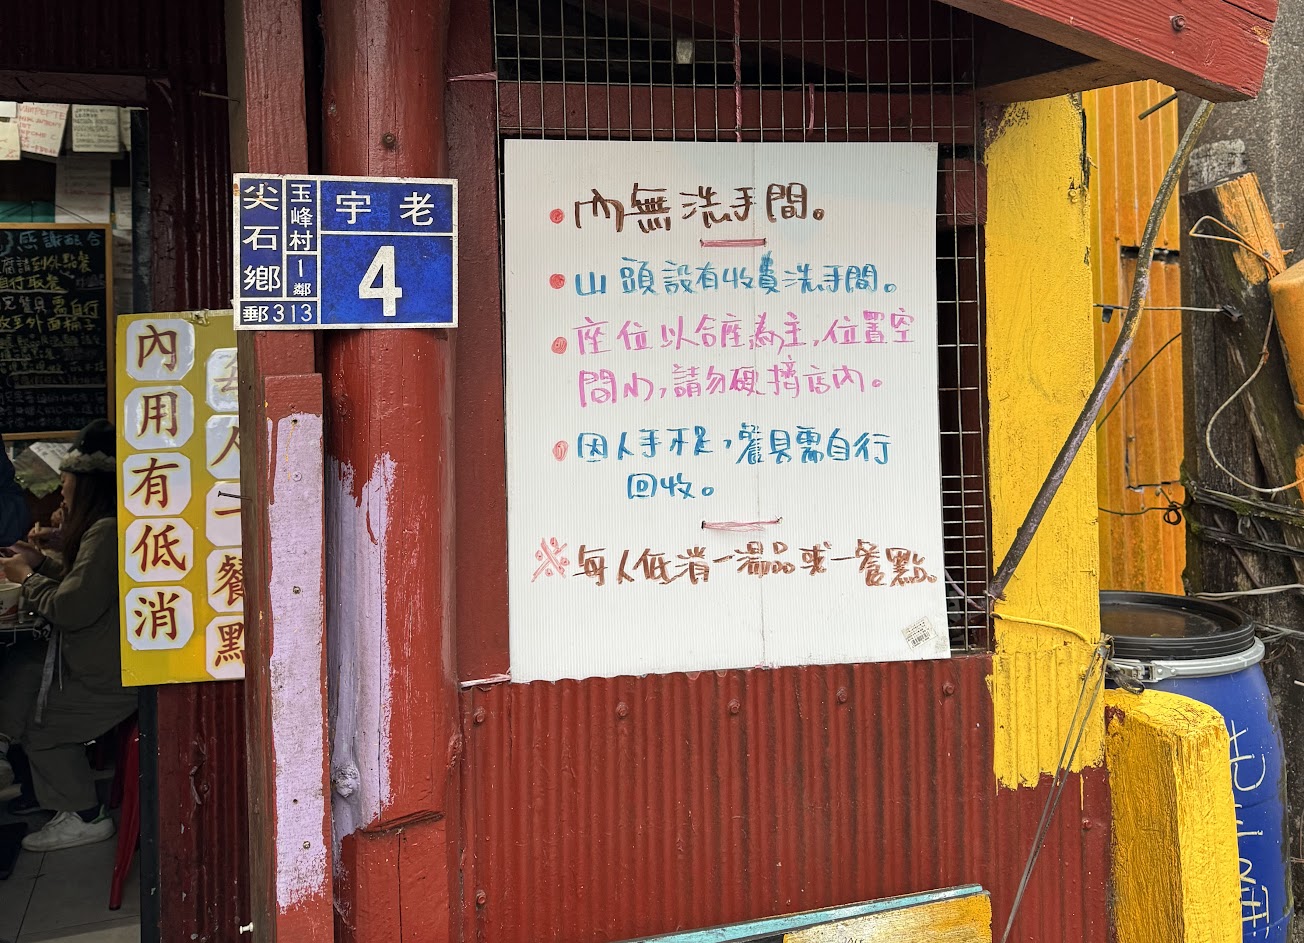 尖石鄉
玉峰村
1鄰
郵313
宇老
4
內用有低消
每人一餐點
內無洗手間。
山頭設有收費洗手間。
座位以合座為主,位置空
間小,請勿硬擠店內。
因人手不足,餐具需自行
回收。
※每人低消一湯品或一餐點。
感謝配合
自行取餐